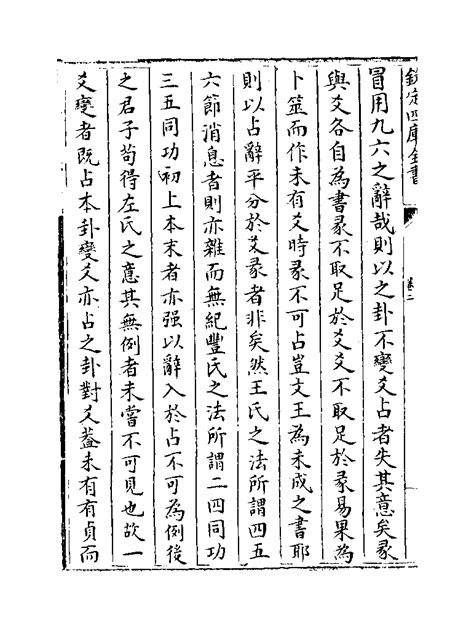 欽定四庫全書
卷二
冒用九六之辭哉則以之卦不變爻占者失其意矣彖
與爻各自為書彖不取足於爻爻不取足於彖易果為
卜筮而作未有爻時彖不可占豈文王為未成之書耶
則以占辭平分於爻彖者非矣然王氏之法所謂四五
六節消息者則亦雜而無紀豐氏之法所謂二四同功
三五同功初上本末者亦强以辭入於占不可為例後
之君子苟得左氏之意其無例者未嘗不可見也故一
爻變者既占本卦變爻亦占之卦對爻葢未有有貞而